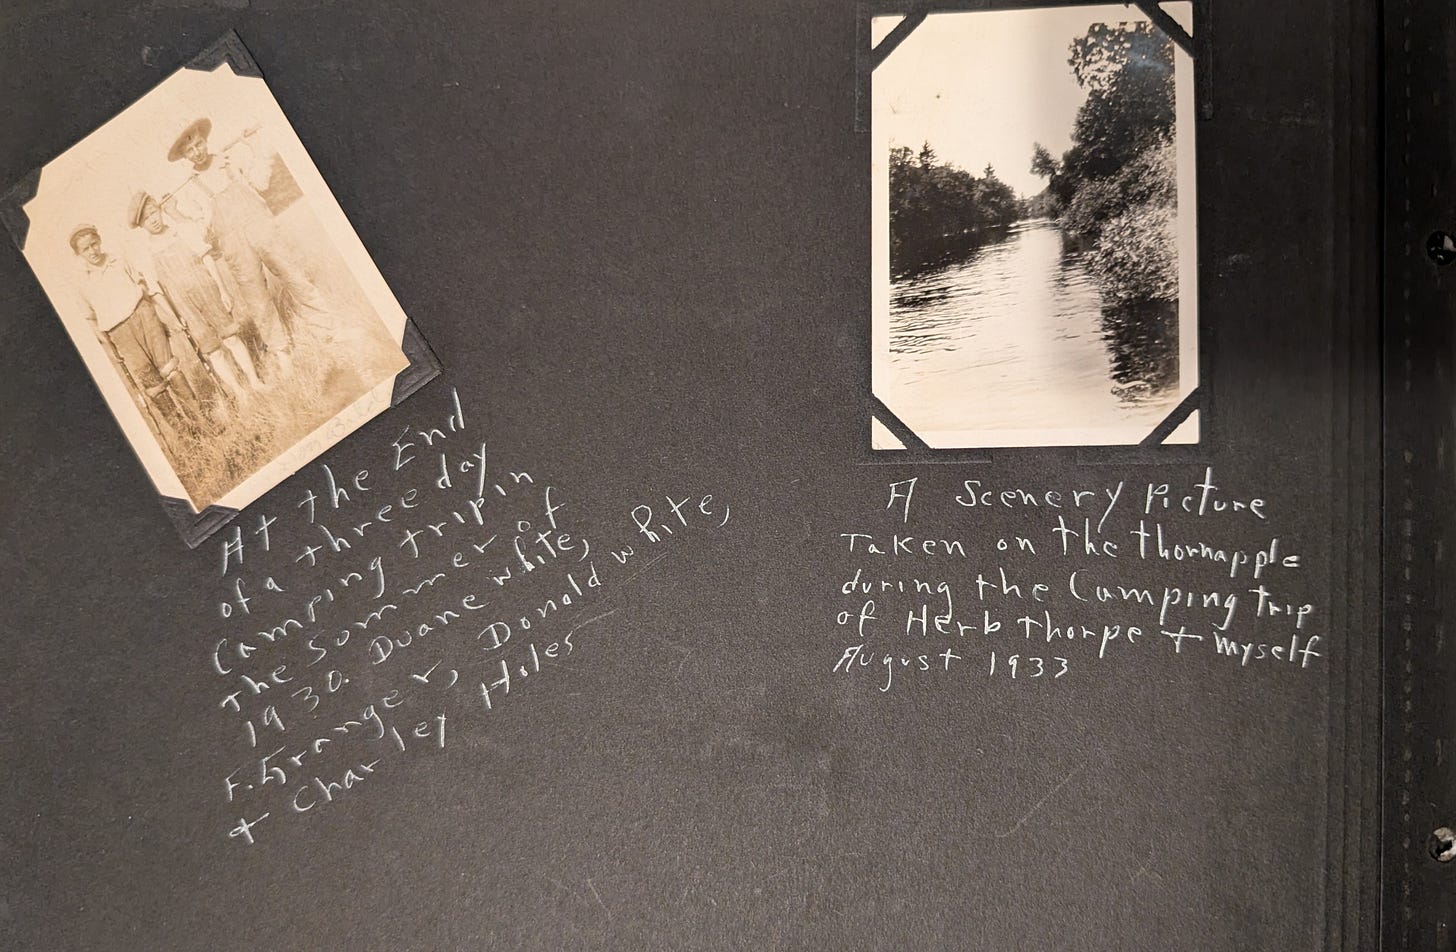 At the End
of a three day
Camping trip in
the Summer of
1930. Duane white,
F. Granger, Donald white,
+ Charley Holes
A Scenery Picture
Taken on the thornapple
during the Camping Trip
of Herb thorpe + myself
August 1933